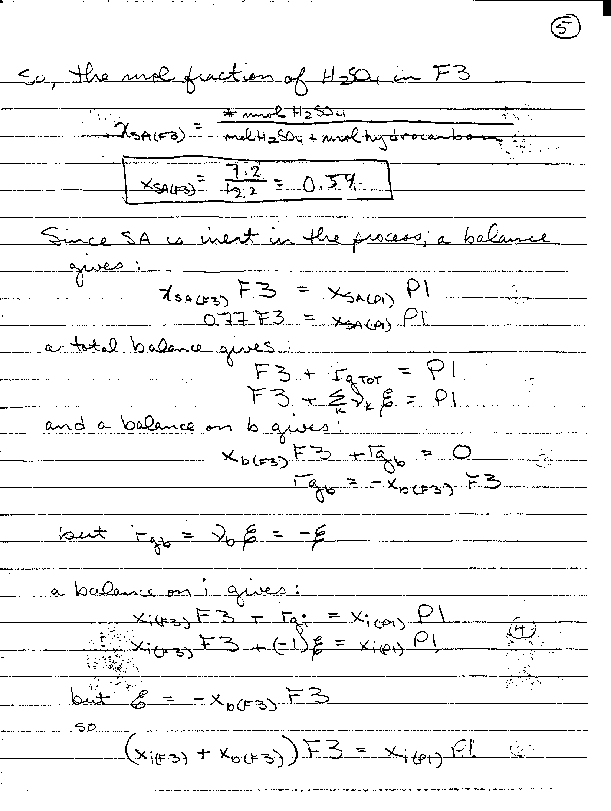 5
So, the mol fraction of H2SO4 in F3
x_SA(F3) = mol H2SO4 / mol H2SO4 + mol hydrocarbon
x_SA(F3) = 7.2 / 12.2 = 0.59
Since SA is inert in the process, a balance
gives:
x_SA(F3) F3 = x_SA(P1) P1
0.77 F3 = x_SA(P1) P1
a total balance gives:
F3 + r_g TOT = P1
F3 + Σ_k ν_k ξ = P1
and a balance on b gives:
x_b(F3) F3 + r_gb = 0
r_gb = -x_b(F3) F3
but r_gb = ν_b ξ = -ξ
a balance on i gives:
x_i(F3) F3 + r_gi = x_i(P1) P1
x_i(F3) F3 + (-1)ξ = x_i(P1) P1 (4)
but ξ = -x_b(F3) F3
so
(x_i(F3) + x_b(F3)) F3 = x_i(P1) P1